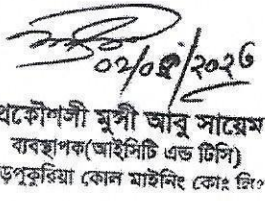 ০২/০৪/২০২৬
প্রকৌশলী মুন্সী আবু সায়েম
ব্যবস্থাপক(আইসিটি এন্ড টিসি)
ড়পুকুরিয়া কোল মাইনিং কোঃ লিঃ